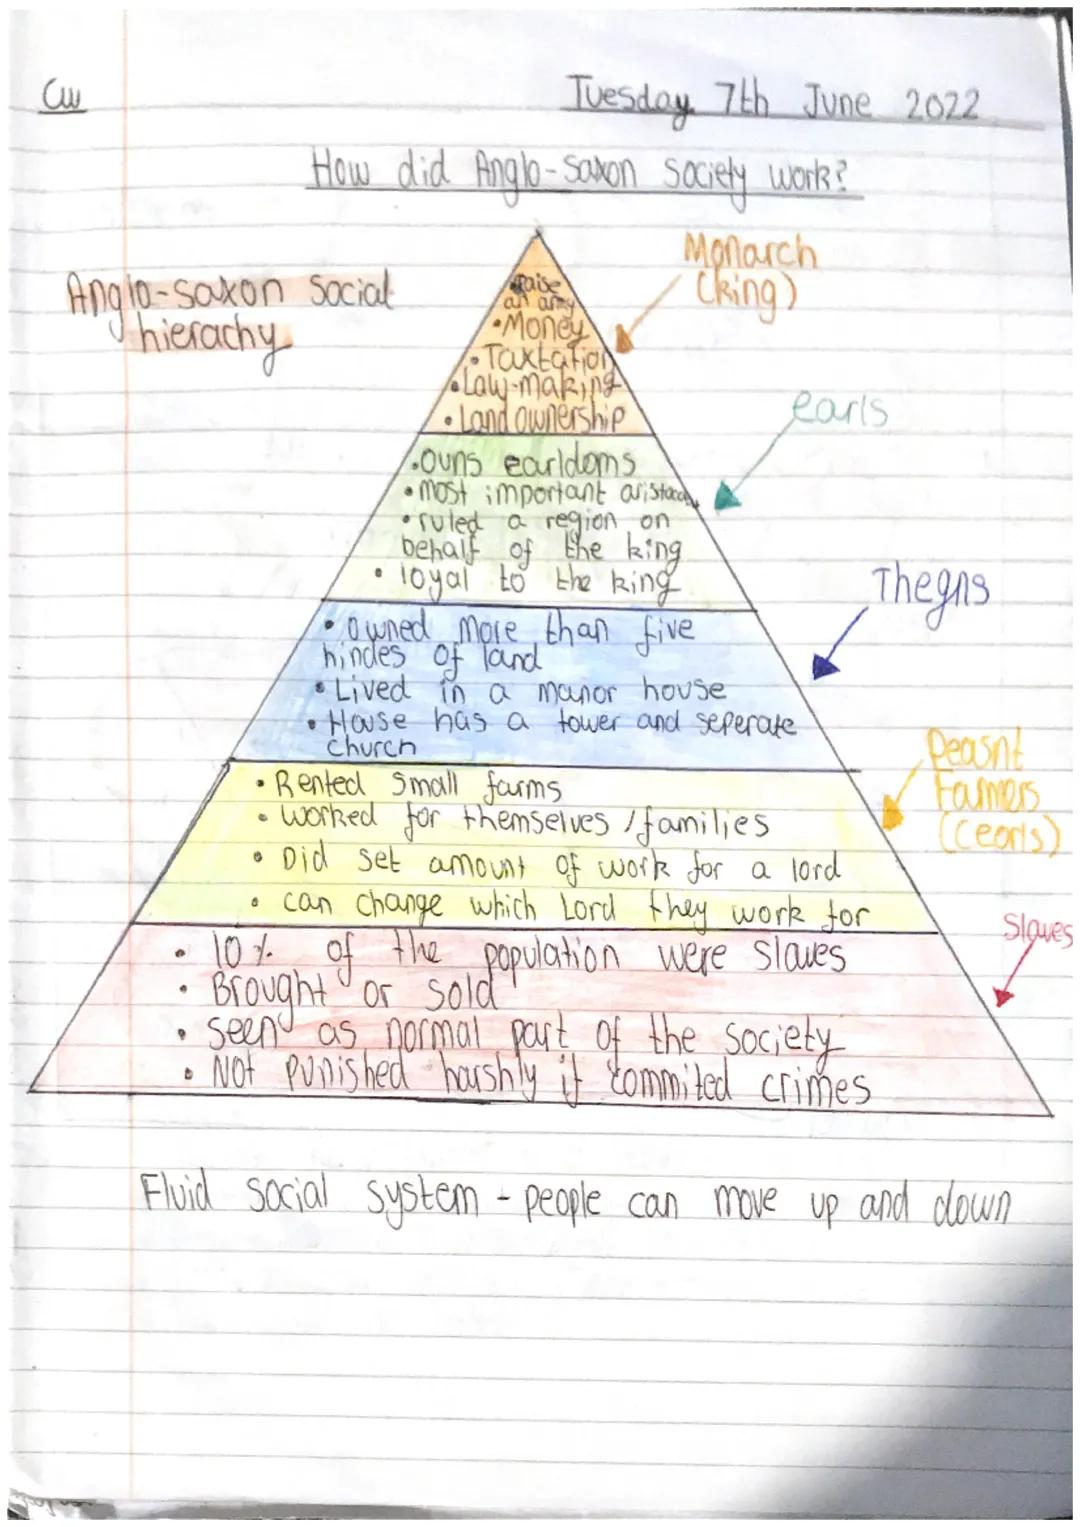 CW
Tuesday 7th June 2022
How did Anglo-Saxon Society work?
Anglo-saxon Social
hierachy
Monarch
(king)
raise
an army
• Money
• Taxtation
• Law-making
• Land ownership
earls
• owns earldoms
• most important
• ruled a region on
behalf of the king
• loyal to the king
Thegns
• owned more than five
hindes of land
• Lived in a manor house
• House has a tower and seperate
church
Peasnt
Farmers
(Ceorls)
• Rented small farms
• worked for themselves / families
• Did set amount of work for a lord
• can change which Lord they work for
Slaves
• 10% of the population were slaves
• Brought or sold
• seen as normal part of the society
• Not punished harshly if commited crimes
Fluid social system - people can move up and down